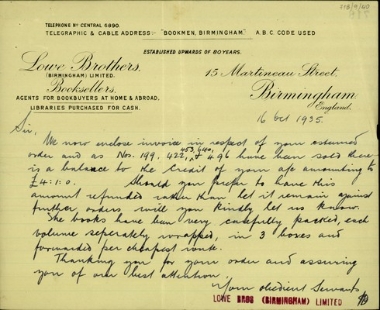 TELEPHONE BY CENTRAL 6890.
TELEGRAPHIC & CABLE ADDRESS "BOOKMEN, BIRMINGHAM." A.B.C. CODE USED
ESTABLISHED UPWARDS OF 80 YEARS.
Lowe Brothers,
(BIRMINGHAM) LIMITED.
Booksellers,
AGENTS FOR BOOKBUYERS AT HOME & ABROAD,
LIBRARIES PURCHASED FOR CASH.
15 Martineau Street,
Birmingham,
England.
16 Oct 1935.
Sir,
We now enclose invoice in respect of your esteemed
order and as Nos. 199, 422, 453, 640, & 496 have been sold there
is a balance to the credit of your a/c amounting to
£4:1:0. Should you prefer to have this
amount refunded rather than let it remain against
further orders will you kindly let us know.
The books have been very carefully packed, each
volume seperately wrapped, in 3 boxes and
forwarded per cheapest route.
Thanking you for your order and assuring
you of our best attention.
Your obedient Servants
LOWE BROS (BIRMINGHAM) LIMITED